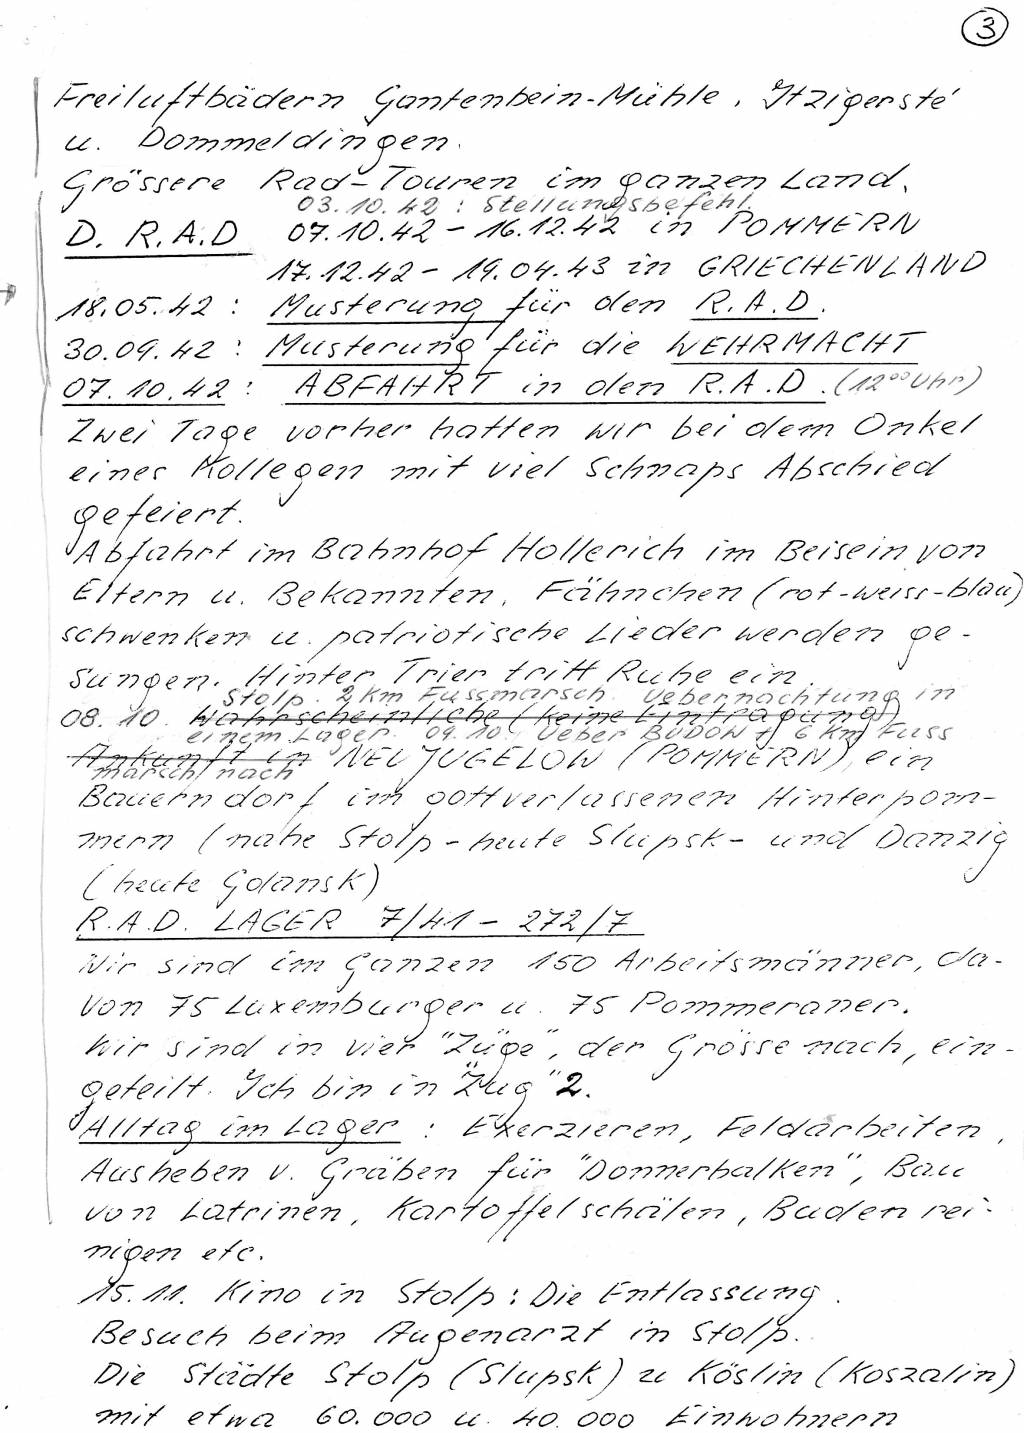 3
Freiluftbädern Gantenbein-Mühle, Itzigersté
u. Dommeldingen.
Grössere Rad-Touren im ganzen Land.
03.10.42 : Stellungsbefehl.
D. R.A.D 07.10.42 - 16.12.42 in POMMERN
17.12.42 - 19.04.43 in GRIECHENLAND
18.05.42 : Musterung für den R.A.D.
30.09.42 : Musterung für die WEHRMACHT
07.10.42 : ABFAHRT in den R.A.D. (12⁰⁰ Uhr)
Zwei Tage vorher hatten wir bei dem Onkel
eines Kollegen mit viel Schnaps Abschied
gefeiert.
Abfahrt im Bahnhof Hollerich im Beisein von
Eltern u. Bekannten, Fähnchen (rot-weiss-blau)
schwenken u. patriotische Lieder werden ge-
sungen. Hinter Trier tritt Ruhe ein.
Stolp. 2 Km Fussmarsch. Uebernachtung in
08.10. Wahrscheinliche (keine Eintragung)
einem Lager. 09.10. Ueber BUDOW 6 Km Fuss
Ankunft in NEU JUGELOW (POMMERN), ein
marsch nach
Bauerndorf im gottverlassenen Hinterpom-
mern (nahe Stolp - heute Slupsk - und Danzig
(heute Gdansk)
R.A.D. LAGER 7/41 - 272/7
Wir sind im Ganzen 150 Arbeitsmänner, da-
von 75 Luxemburger u. 75 Pommeraner.
Wir sind in vier "Züge", der Grösse nach, ein-
geteilt. Ich bin in "Zug" 2.
Alltag im Lager : Exerzieren, Feldarbeiten,
Ausheben v. Gräben für "Donnerbalken", Bau
von Latrinen, Kartoffelschälen, Buden rei-
nigen etc.
15.11. Kino in Stolp : Die Entlassung.
Besuch beim Augenarzt in Stolp.
Die Städte Stolp (Slupsk) u Köslin (Koszalin)
mit etwa 60.000 u. 40.000 Einwohnern